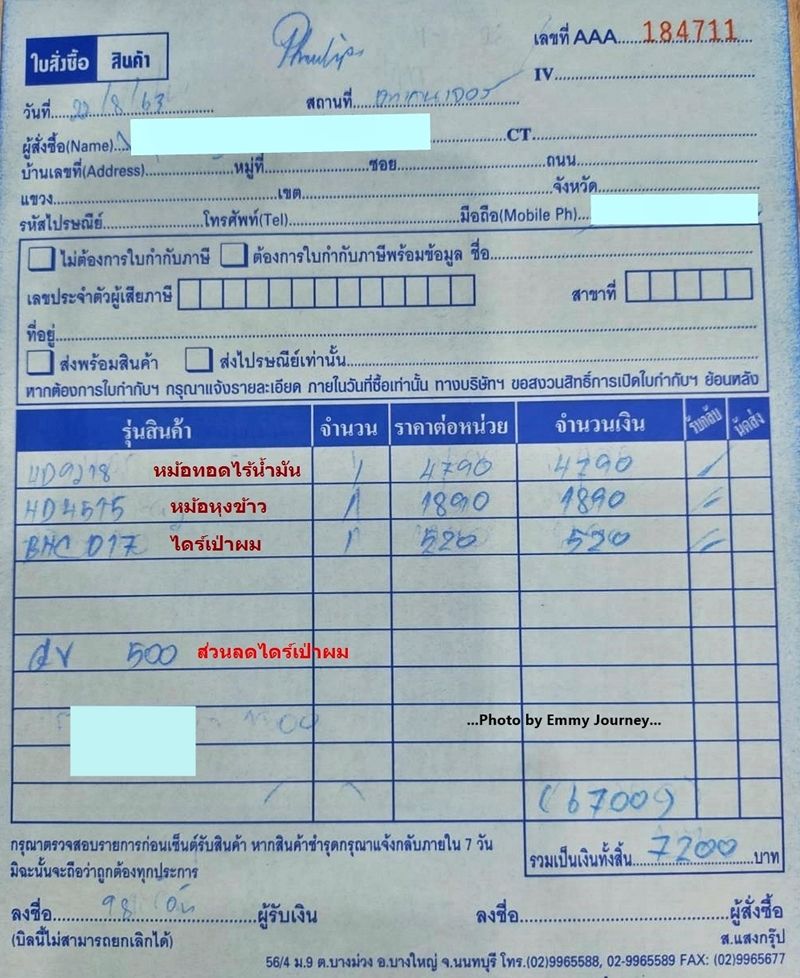 ใบสั่งซื้อ สินค้า
Philips
เลขที่ AAA 184711
IV
วันที่ 22/8/63 สถานที่
ผู้สั่งซื้อ(Name) CT
บ้านเลขที่(Address) หมู่ที่ ซอย ถนน
แขวง เขต จังหวัด
รหัสไปรษณีย์ โทรศัพท์(Tel) มือถือ(Mobile Ph)
ไม่ต้องการใบกำกับภาษี ต้องการใบกำกับภาษีพร้อมข้อมูล ชื่อ
เลขประจำตัวผู้เสียภาษี สาขาที่
ที่อยู่
ส่งพร้อมสินค้า ส่งไปรษณีย์เท่านั้น
หากต้องการใบกำกับฯ กรุณาแจ้งรายละเอียด ภายในวันที่ซื้อเท่านั้น ทางบริษัทฯ ขอสงวนสิทธิ์การเปิดใบกำกับฯ ย้อนหลัง
รุ่นสินค้า จำนวน ราคาต่อหน่วย จำนวนเงิน รับกลับ นัดส่ง
HD9218 หม้อทอดไร้น้ำมัน 1 4790 4790
HD4515 หม้อหุงข้าว 1 1890 1890
BHC 017 ไดร์เป่าผม 1 520 520
500 ส่วนลดไดร์เป่าผม
...Photo by Emmy Journey...
(6700)
กรุณาตรวจสอบรายการก่อนเซ็นต์รับสินค้า หากสินค้าชำรุดกรุณาแจ้งกลับภายใน 7 วัน
มิฉะนั้นจะถือว่าถูกต้องทุกประการ
รวมเป็นเงินทั้งสิ้น 7200 บาท
ลงชื่อ ผู้รับเงิน ลงชื่อ ผู้สั่งซื้อ
(บิลนี้ไม่สามารถยกเลิกได้) ส.แสงกรุ๊ป
56/4 ม.9 ต.บางม่วง อ.บางใหญ่ จ.นนทบุรี โทร.(02)9965588, 02-9965589 FAX: (02)9965677